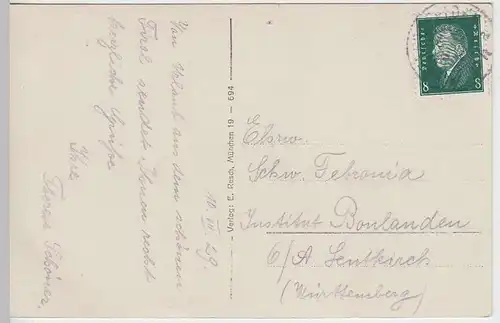 Von Urlaub aus dem schönen
Tirol sendet Ihnen recht
herzliche Grüße
Ihre
Therese Schöner.
10. IV. 29.
Verlag: E. Rasch, München 19 — 694
Deutsches Reich
8 8
Ehrw.
Schw. Febronia
Institut Bonlanden
b/A Leutkirch
(Württemberg)